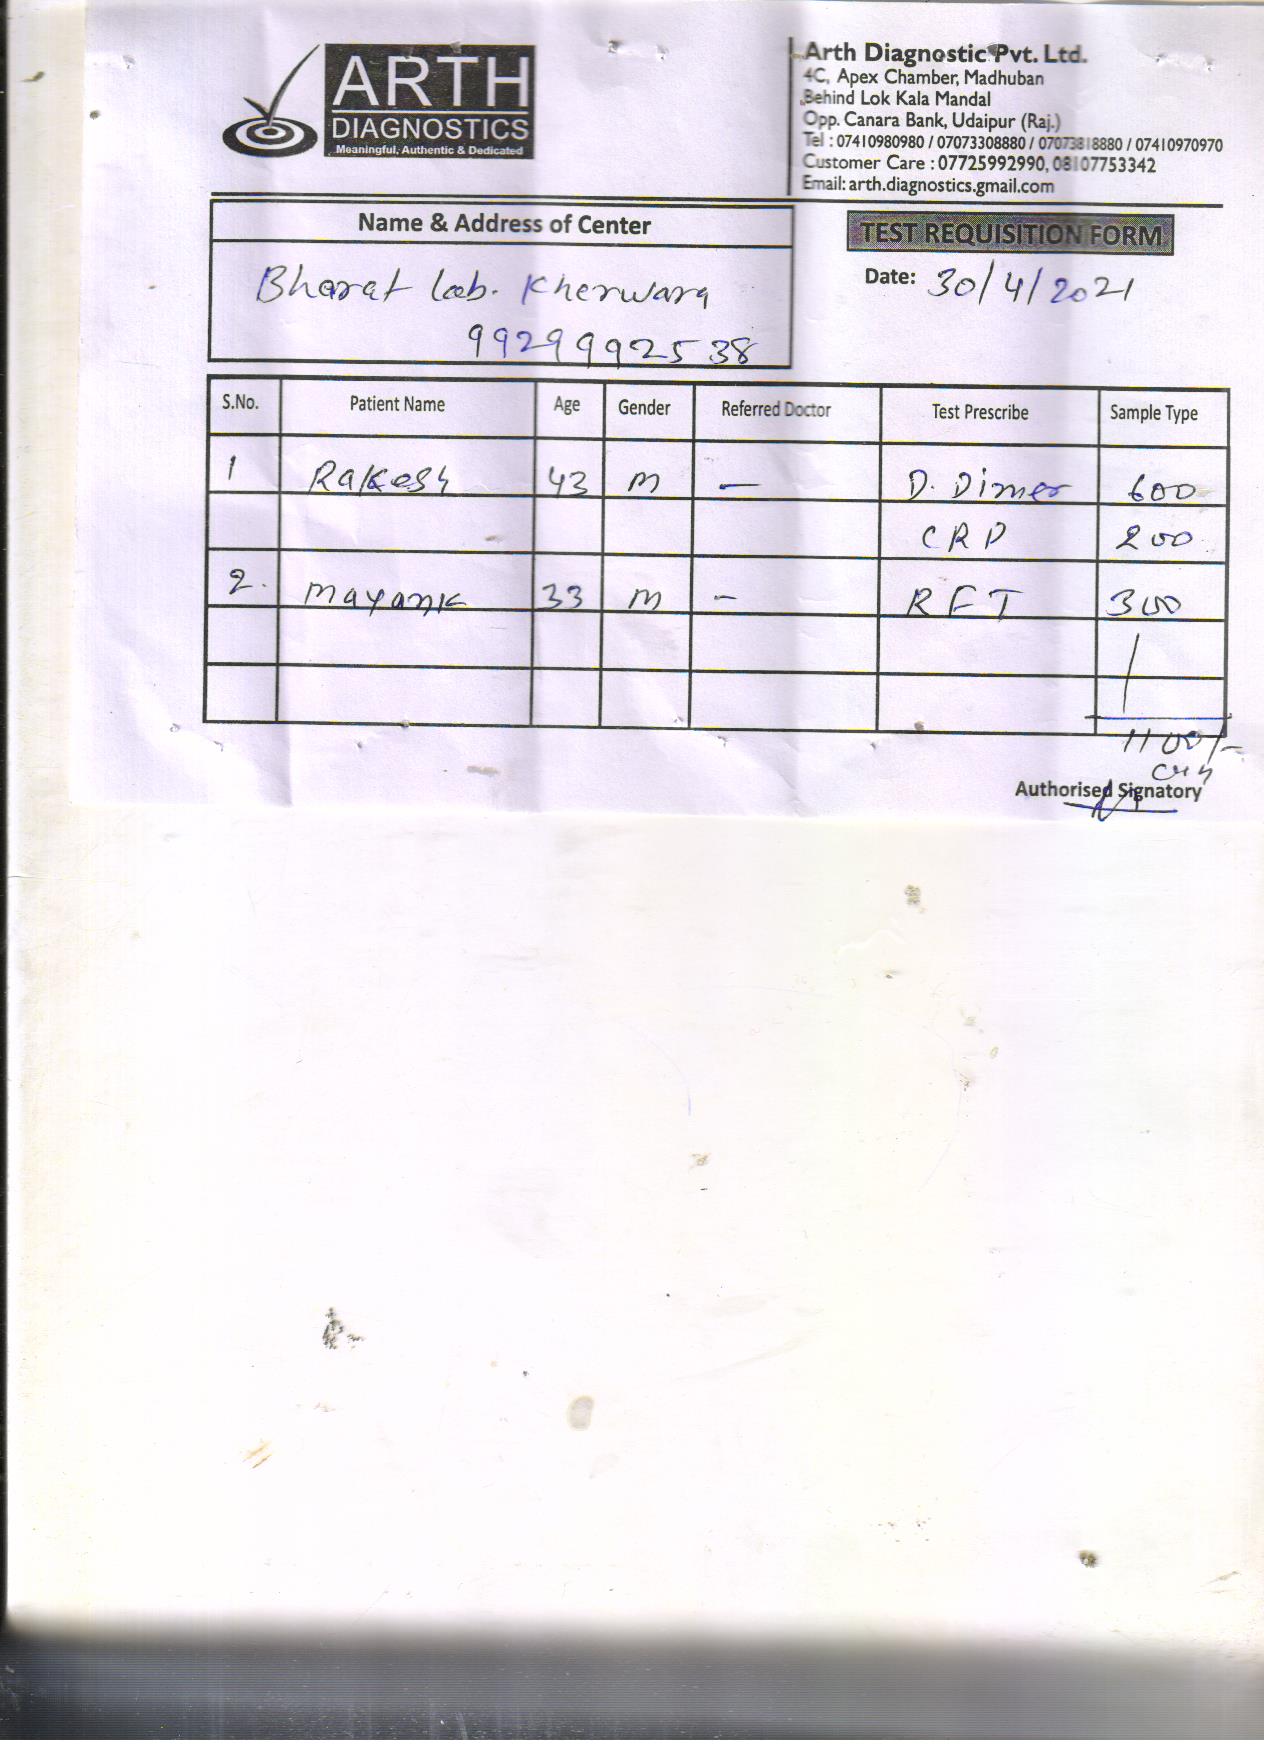 ARTH
DIAGNOSTICS
Meaningful, Authentic & Dedicated
Arth Diagnostic Pvt. Ltd.
4C, Apex Chamber, Madhuban
Behind Lok Kala Mandal
Opp. Canara Bank, Udaipur (Raj.)
Tel : 07410980980 / 07073308880 / 07073818880 / 07410970970
Customer Care : 07725992990, 08107753342
Email: arth.diagnostics.gmail.com
Name & Address of Center
TEST REQUISITION FORM
Bharat Lab. Kherwara
9929992538
Date: 30/4/2021
S.No. Patient Name Age Gender Referred Doctor Test Prescribe Sample Type
1 Rakesh 43 M — D. Dimer 600
CRP 200
2. Mayank 33 M - RFT 300
1100/-
Authorised Signatory